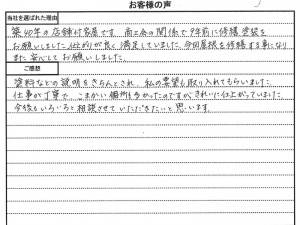 お客様の声
当社を選ばれた理由
築40年の店舗付客屋です。商工会の関係で9年前に修繕塗装を
お願いしました。仕上りが良く満足していました。今回屋根を修繕する事になり
また安心してお願いしました。
ご感想
塗料などの説明もきちんとされ、私の要望も取り入れてもらいました。
仕事が丁寧で、こまかい個所も多かったのですがきれいに仕上がっていました。
今後もいろいろと相談させていただきたいと思います。